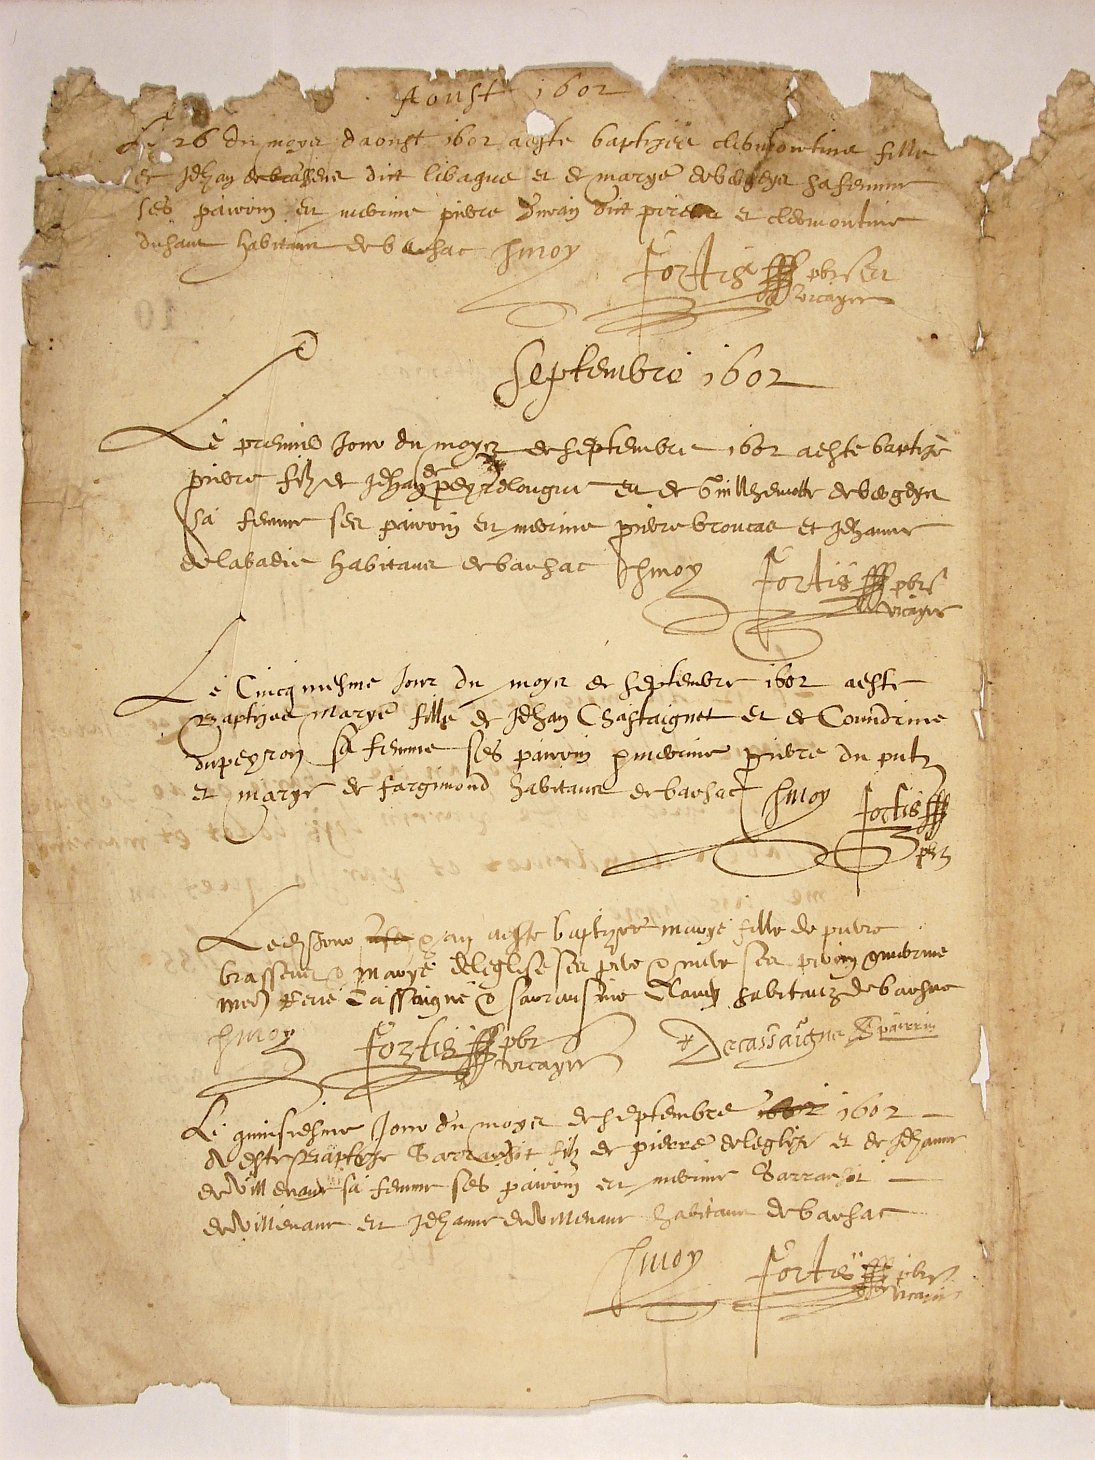 Aoust 1602
Le 26 du moys daoust 1602 a este baptizee clemontine fille
de Jehan dict libague et de marye de sa femme
ses pairrin et merine pierre dict et clemontine
habitans de barsac par moy Fortis pbr et
vicayre
Septembre 1602
Le premier Jour du moys de septembre 1602 a este baptize
pierre filz de Jehan de peyrelongue et de Guilhemotte
sa femme ses pairrin et merine pierre broucas et Jehanne
de labadie habitans de barsac par moy Fortis pbr
vicayre
Le Cincquiesme Jour du moys de septembre 1602 a este
Baptizee marye fille de Jehan Chastaignet et de Coundrine
dupeyron sa femme ses pairrin et merine pierre du putz
et marye de fargimond habitans de barsac par moy Fortis
pbr
Led Jour et an a este baptizee marye fille de pierre
brassens et marye deleglise ses pere et mere ses pairrin et merine
habitans de barsac
par moy Fortis pbr vicayre Decassaigne pairrin
Le quinsiesme Jour du moys de septembre 1602
A este Baptize Sarransot filz de pierre deleglize et de Jehanne
de Villenave sa femme ses pairrin et merine Sarransot
de Villenave et Jehanne de Villenave habitans de barsac
par moy Fortis pbr
vicayre